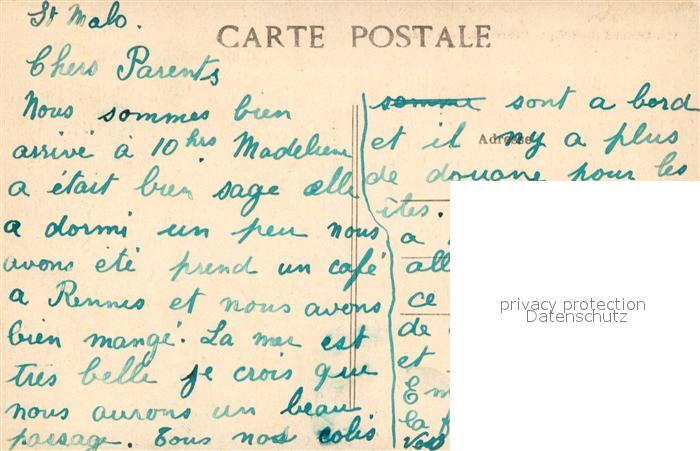 St Malo.
CARTE POSTALE
Chers Parents
Nous sommes bien
arrivé à 10 hrs Madeleine
a était bien sage elle
a dormi un peu nous
avons eté prend un café
a Rennes et nous avons
bien mangé. La mer est
très belle je crois que
nous aurons un beau
passage. Tous nos colis
somme sont a bord
et il ny a plus
Adresse
de douane pour les
îles.
a
all
ce
de
et
Em
la f
privacy protection
Datenschutz